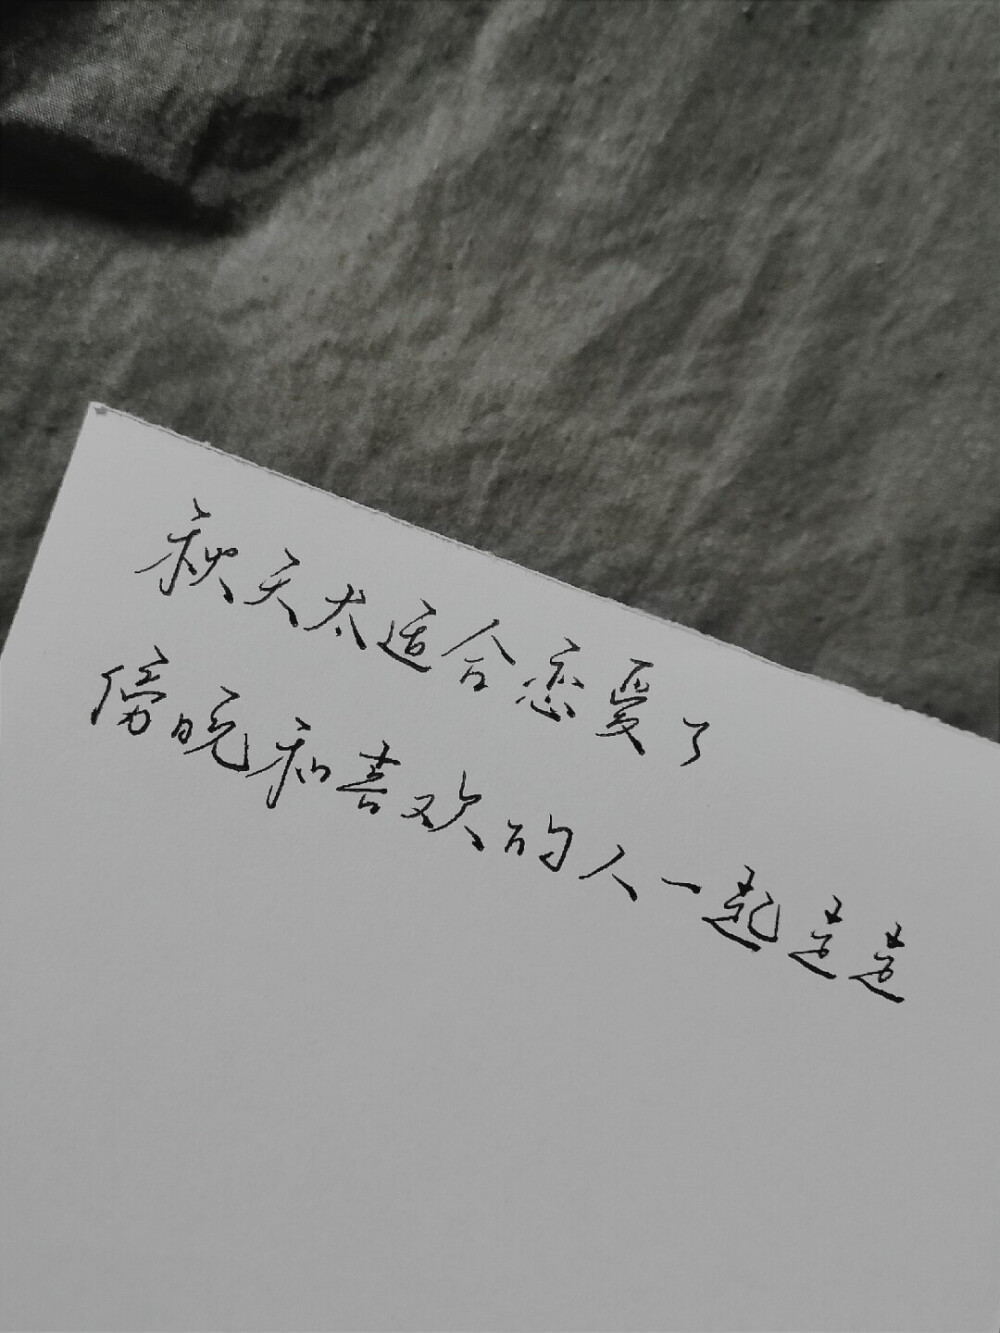 秋天太适合恋爱了
傍晚和喜欢的人一起走走